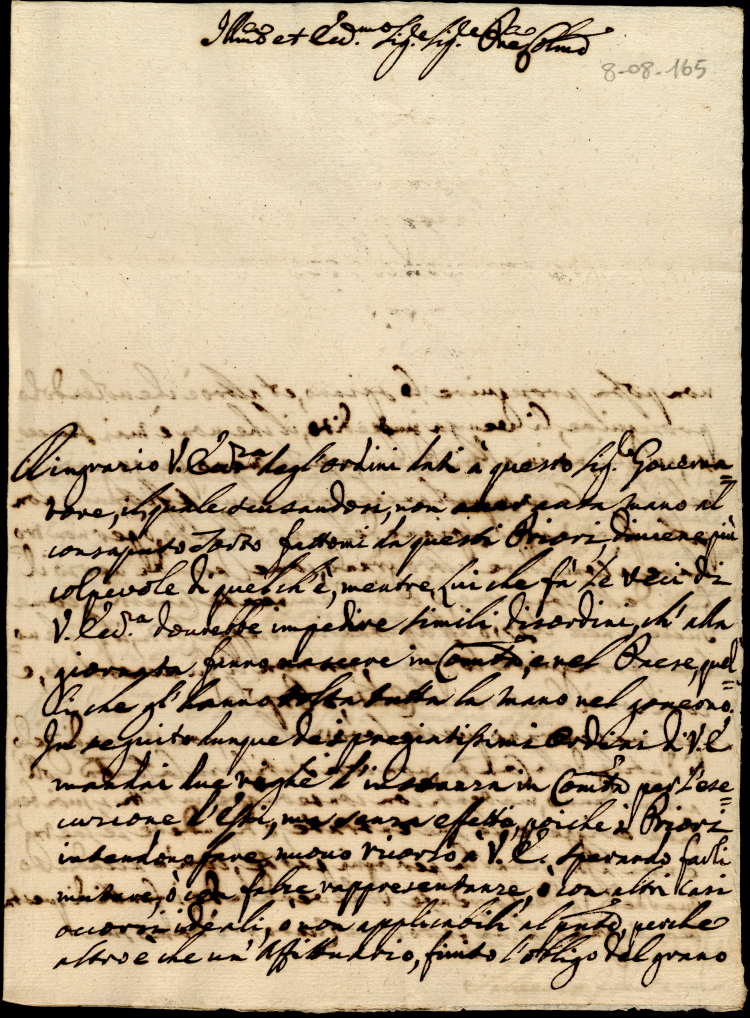 Illmo et Ecc.mo Sig.e Sig.e Pne Colmo
8-08-165
Ringrazio V. Ecc.za degl'ordini dati à questo Sig.e Governa=
tore, il quale scusandosi, non aver parza mano al
consaputo torto fattomi da questi Priori, diviene più
colpevole di quel ch'è, mentre, lui che fà le veci di
V. Ecc.a dourebbe impedire simili disordini, ch'alla
giornata fanno nascere in Comtà, e nel Paese, quel=
li che gl'hanno tolta tutta la mano nel governo.
In seguito dunque de i pregiatissimi Ordini di V. E.
mandai due righe d'instanza in Comtà per l'ese=
cuzione d'essi, ma senza effetto, poiche i Priori
intendono fare nuovo ricorso à V. E. sperando farli
mutare, ò con false rappresentanze, ò con altri casi
occorsi ideali, ò non applicabili al pnte, perche
altro è che un'Affittuario, finito l'obligo del grano